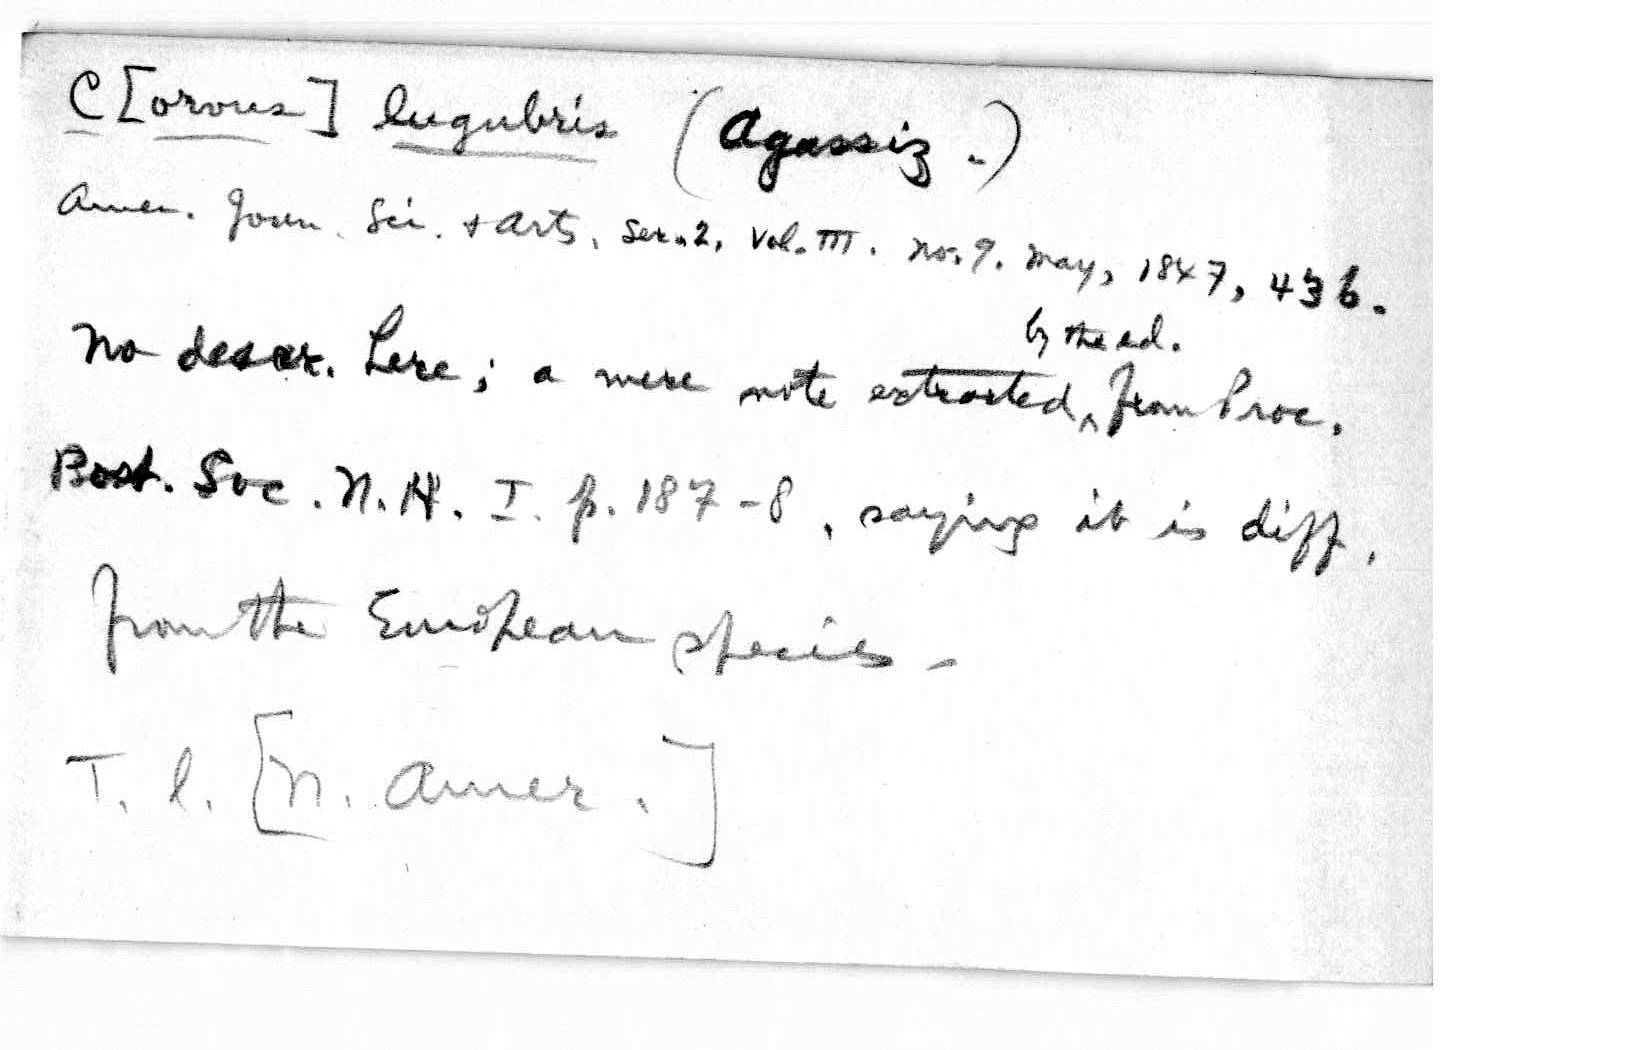 C[orvus] lugubris (Agassiz.)
Amer. Journ. Sci. + Arts, ser. 2, vol. III. no. 9. May, 1847, 436.
by the ed.
No descr. here; a mere note extracted ^ from Proc.
Bost. Soc. N. H. I. p. 187-8, saying it is diff.
from the European species-
T. l. [N. Amer.]